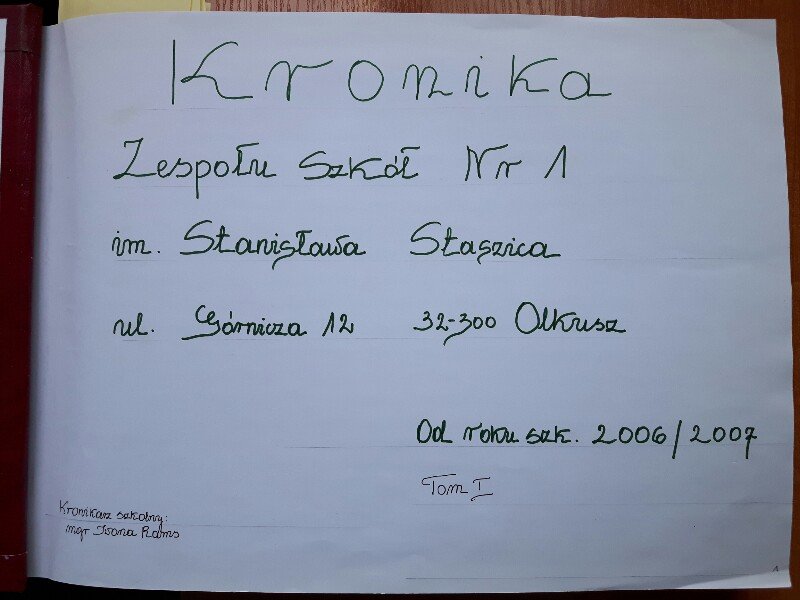 Kronika
Zespołu Szkół Nr 1
im. Stanisława Staszica
ul. Górnicza 12 32-300 Olkusz
Od roku szk. 2006/2007
Tom I
Kronikarz szkolny:
mgr Iwona Rams
1